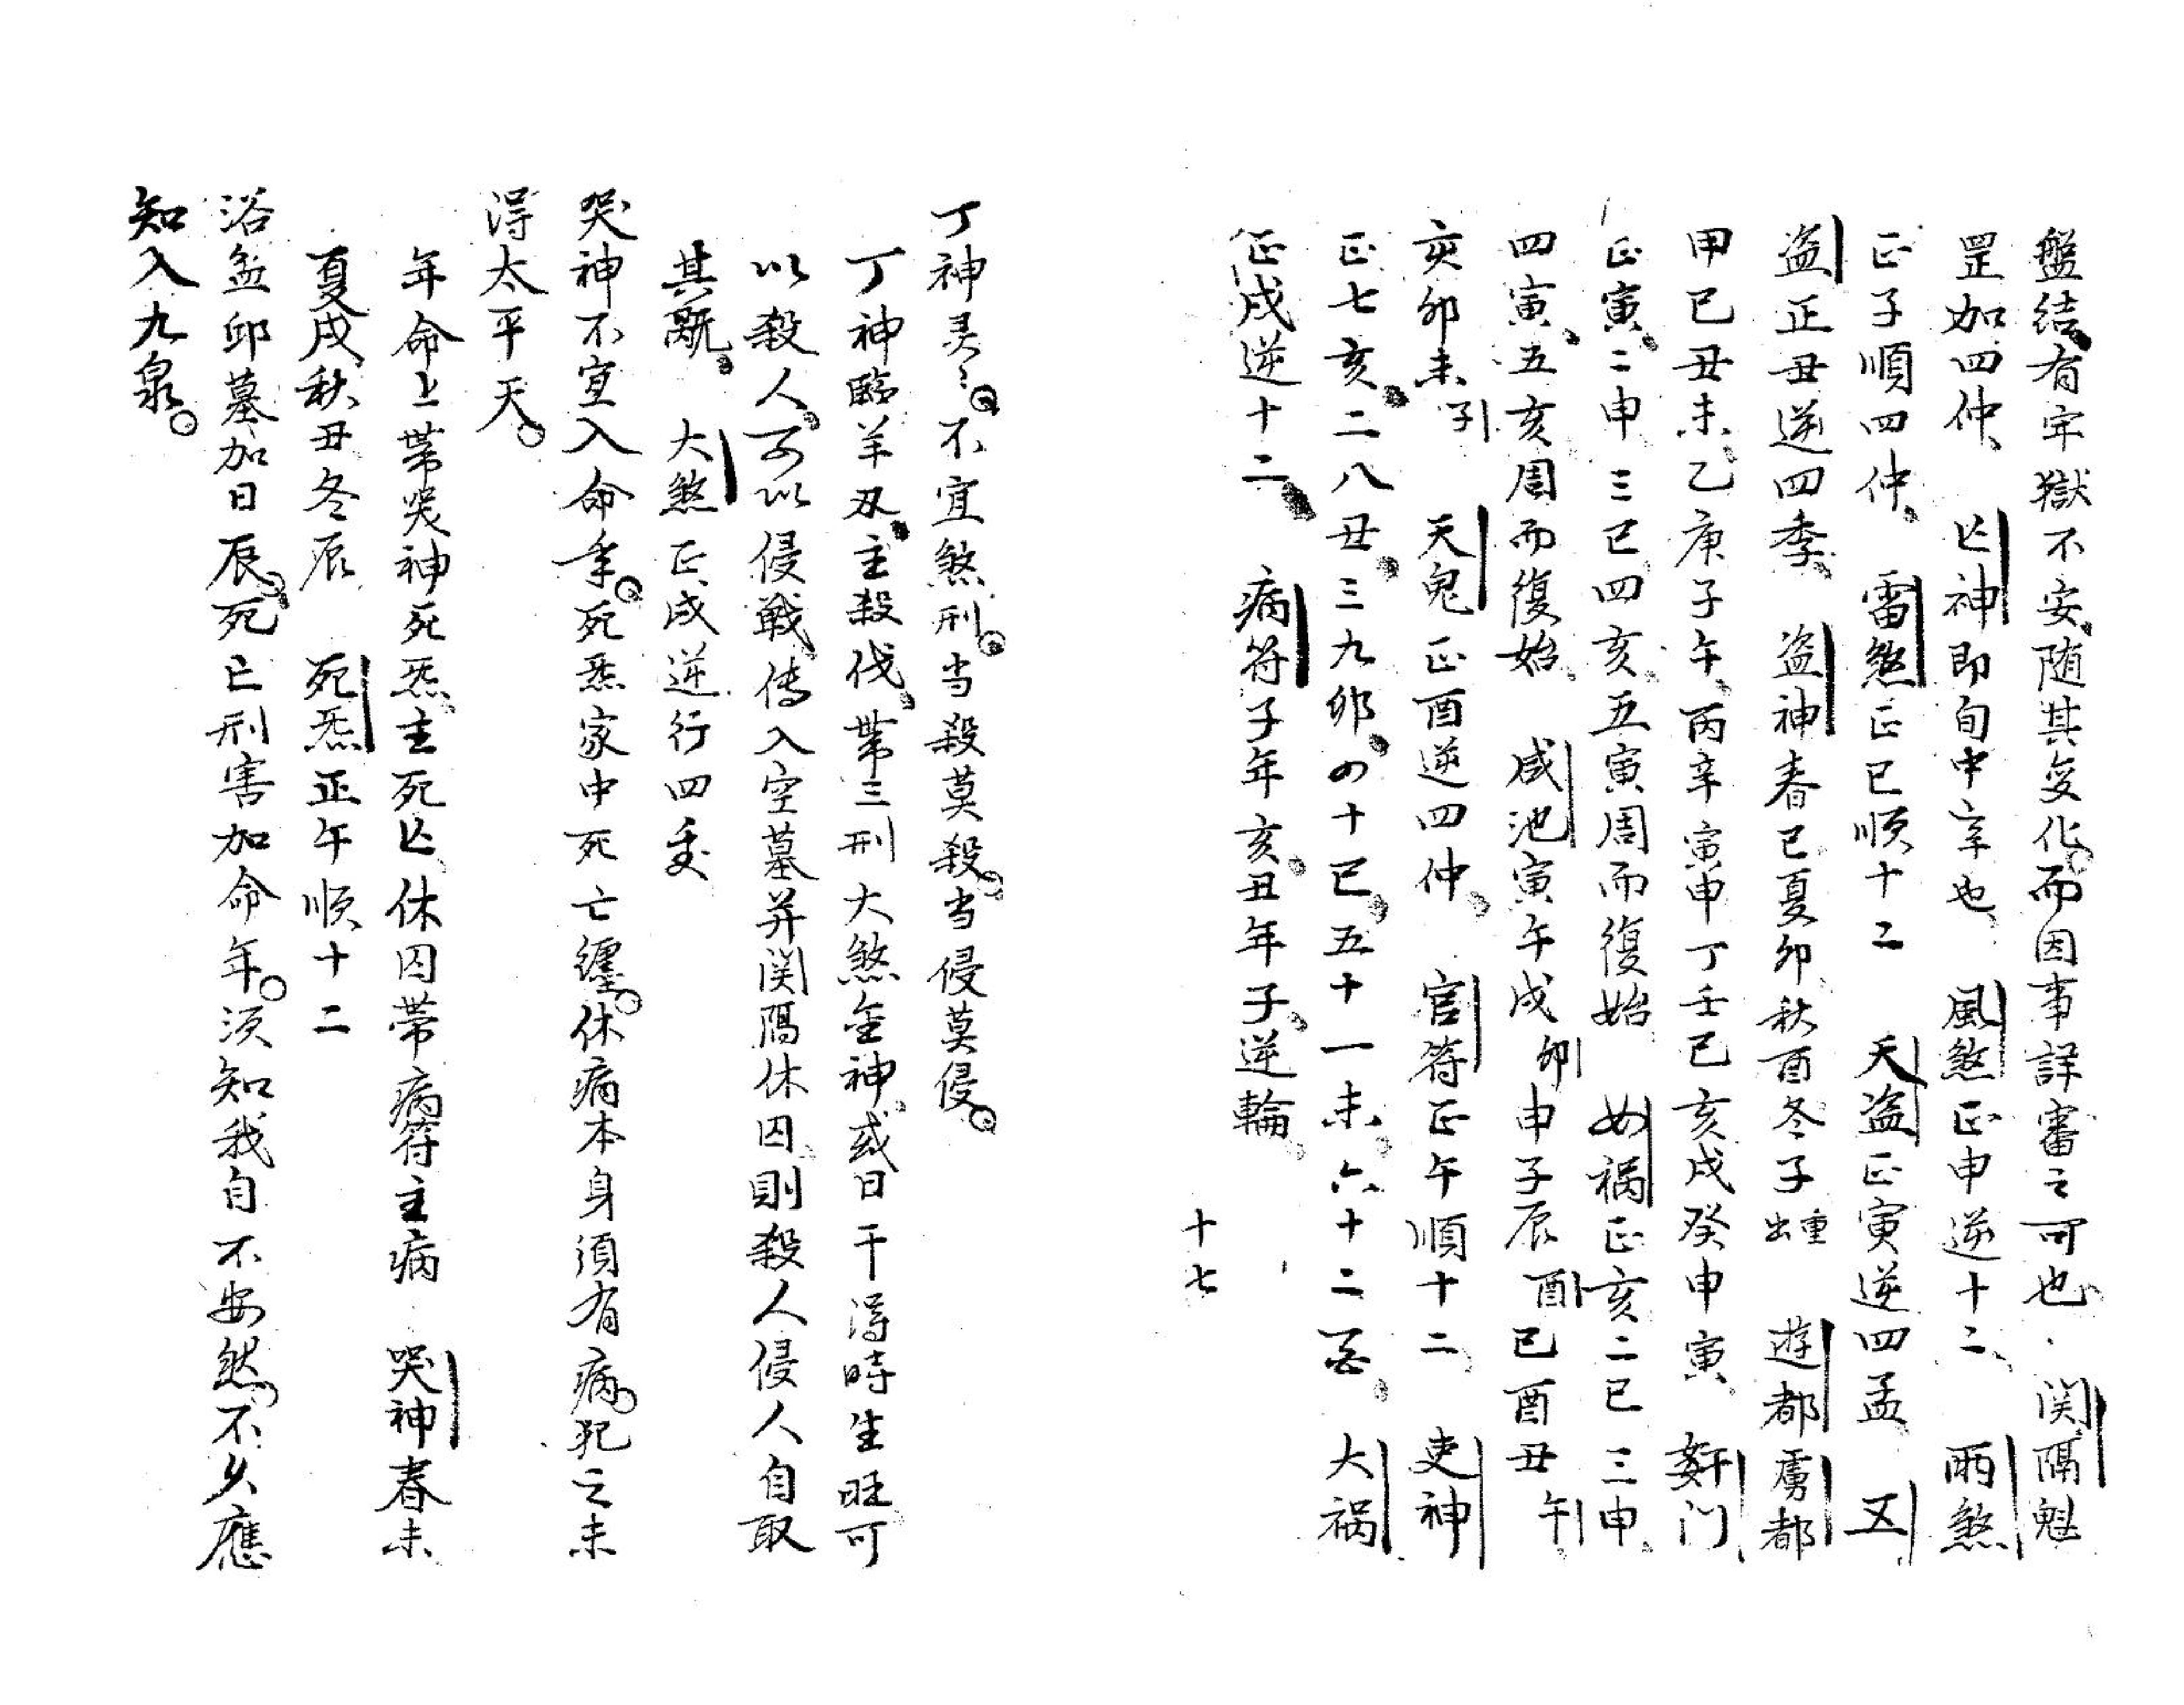 盤結、有牢獄不安、随其変化、而因事詳審之可也、関隔魁
罡加四仲、亡神即旬中辛也、風煞正申逆十二、雨煞
正子順四仲、雷煞正巳順十二 天盗正寅逆四孟 又
盗正丑逆四季、盗神春巳夏卯秋酉冬子重出 遊都虜都
甲己丑未乙庚子午、丙辛寅申丁壬巳亥戌癸申寅、姧门、
正寅、二申三巳四亥五寅周而復始 女禍正亥二巳三申、
四寅、五亥周而復始 咸池寅午戌卯申子辰酉巳酉丑午
亥卯未子 天鬼正酉逆四仲、官符正午順十二、吏神
正七亥、二八丑、三九卯、四十巳、五十一未、六十二酉、大禍
正戌逆十二、病符子年亥、丑年子、逆輪、
十七
丁神灵〻。不宜煞刑。当殺莫殺、当侵莫侵。
丁神臨羊刃、主殺伐、帯三刑大煞金神、或日干得時生旺可
以殺人、可以侵戦、传入空墓并関隔休囚、則殺人侵人自取
其 、大煞正戌逆行四季
哭神不宜入命年。死炁家中死亡纏。休病本身須有病。犯之未
得太平天。
年命上帯哭神死炁、主死亡、休囚帯病符主病 哭神春未
夏戌秋丑冬辰 死炁正午順十二
浴盆邱墓加日辰、死亡刑害加命年。须知我自不安然、不久應
知入九泉。